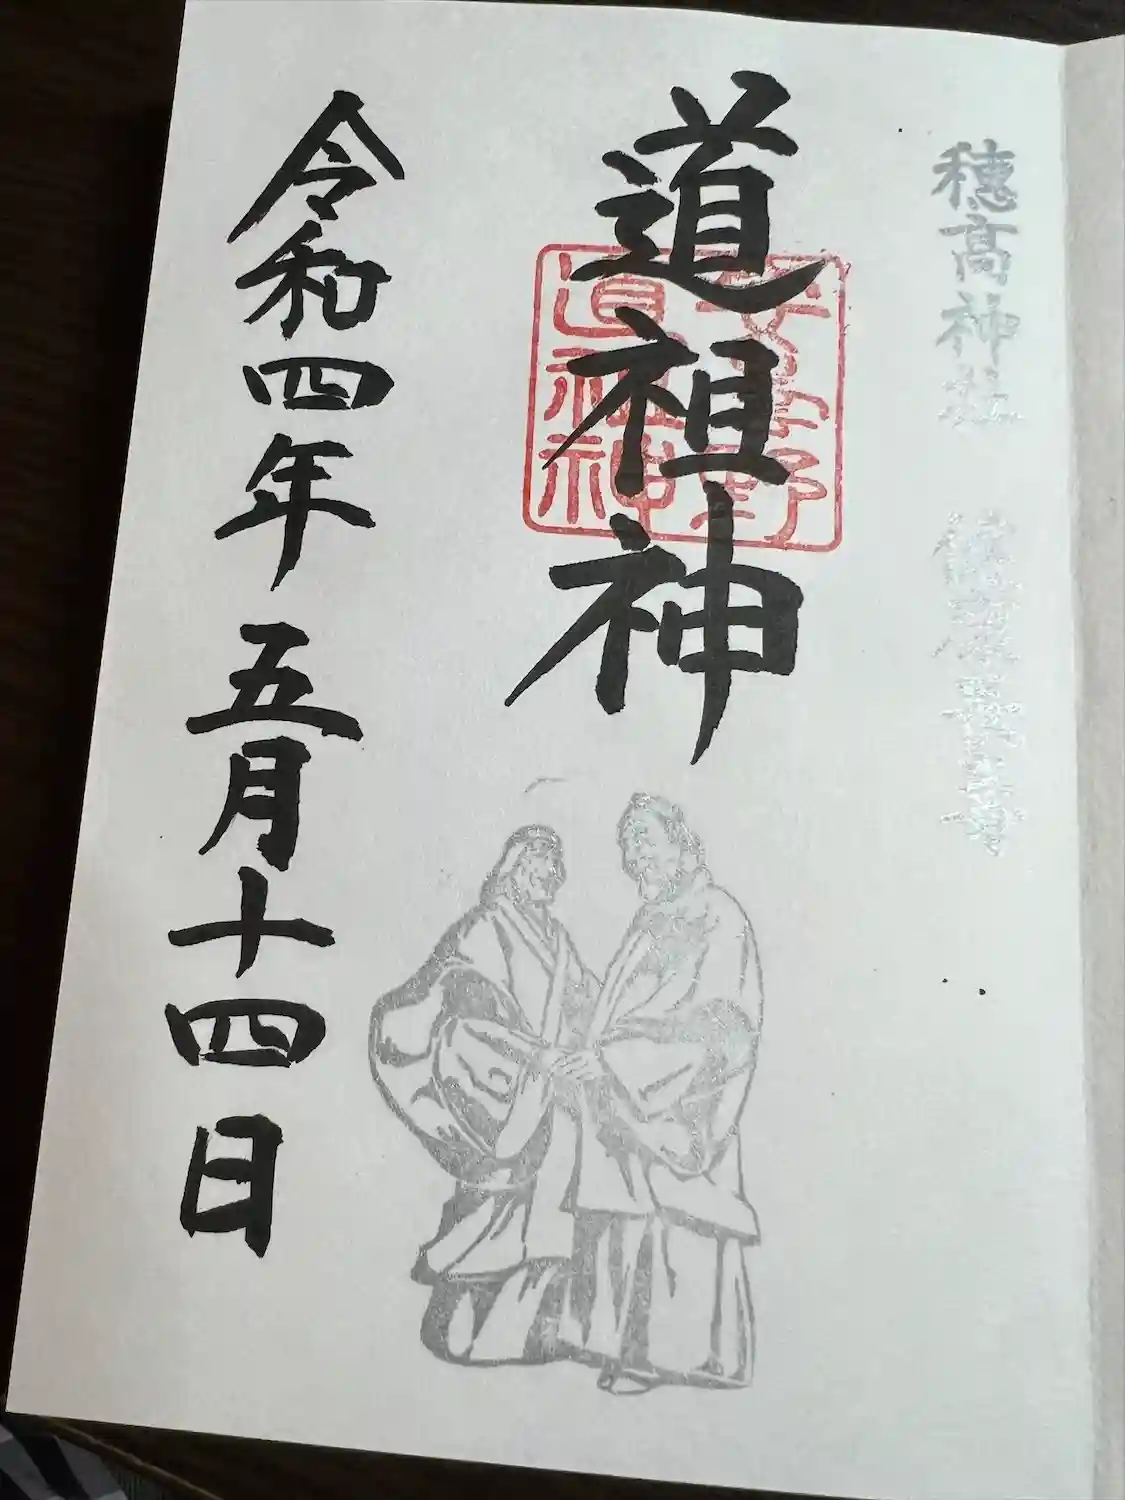 穂高神社
道祖神
安曇野
道祖神
令和四年 五月十四日